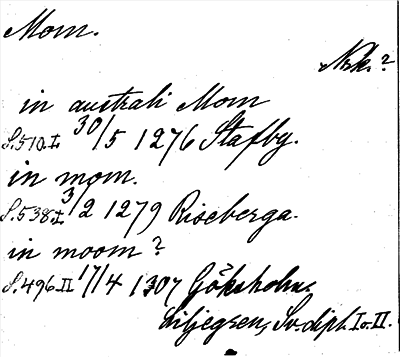 Mom.
Nrk.?
in australi Mom
S.510.I 30/5 1276 Stafby.
in mom.
S.538.I 3/2 1279 Riseberga.
in moom?
S.496.II 17/4 1307 Göksholm.
Liljegren, Sv. dipl. I o. II.